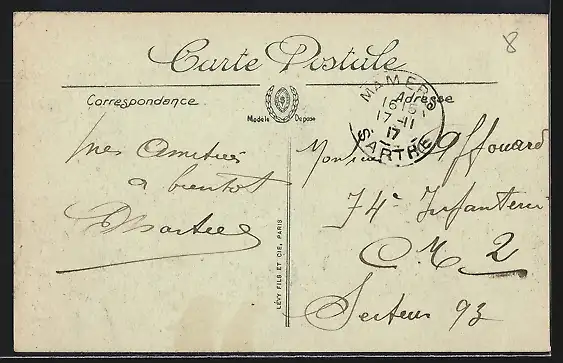 8
Carte Postale
Correspondance
Adresse
Modèle Déposé
MAMERS
16 15
17-11
17
SARTHE
mes Amitiés
a bientot
Monsieur Affouard
74e Infanterie
CM 2
Secteur 93
LÉVY FILS ET CIE, PARIS